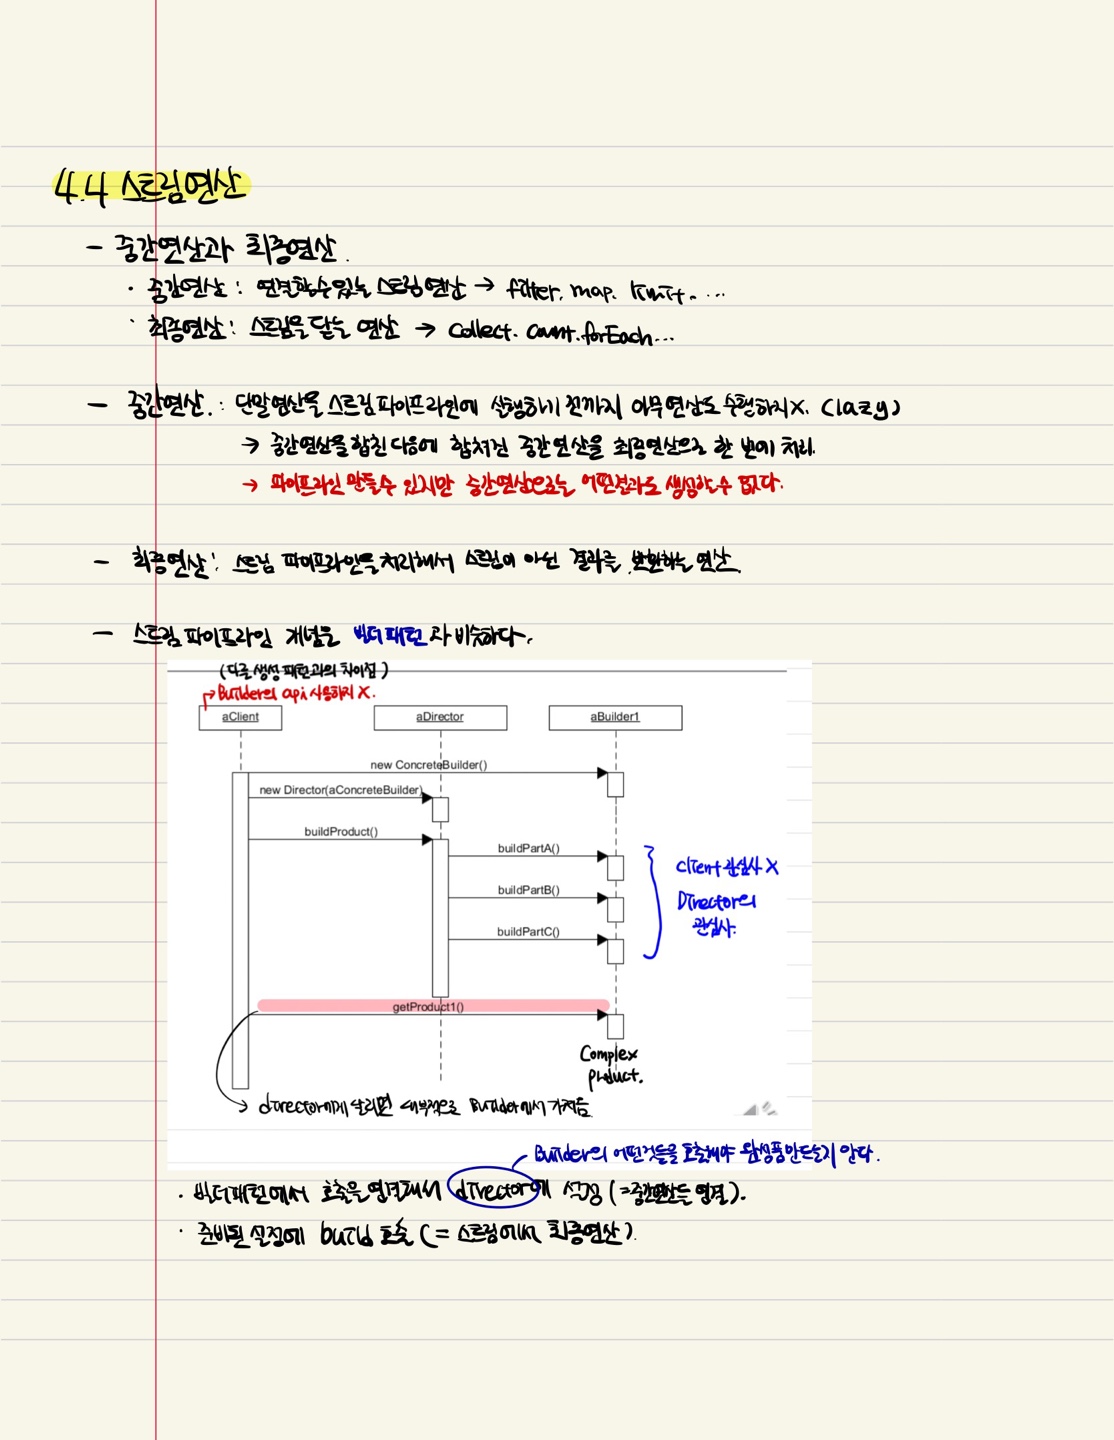 4.4 스트림연산
- 중간연산과 최종연산.
· 중간연산 : 연결할수있는 스트림 연산 → filter. map. limit. ...
· 최종연산 : 스트림을 닫는 연산 → collect. count. forEach...
- 중간연산. : 단말연산을 스트림 파이프라인에 실행하기 전까지 아무연산도 수행하지X. (lazy)
→ 중간연산을 합친 다음에 합쳐진 중간연산을 최종연산으로 한 번에 처리.
→ 파이프라인 만들수 있지만 중간연산으로는 어떤결과도 생성할수 없다.
- 최종연산 : 스트림 파이프라인을 처리해서 스트림이 아닌 결과를 반환하는 연산.
- 스트림 파이프라인 개념은 빌더 패턴과 비슷하다.
(다른 생성 패턴과의 차이점)
→ Builder의 api 사용하지 X.
aClient aDirector aBuilder1
new ConcreteBuilder()
new Director(aConcreteBuilder)
buildProduct()
buildPartA()
client 관심사 X
buildPartB()
Director의
관심사.
buildPartC()
getProduct1()
Complex
product.
→ director에게 달라면 내부적으로 Builder에서 가져옴
Builder의 어떤것들을 호출해야 완성품만드는지 안다.
· 빌더패턴에서 호출을 연결해서 director에 설정 (=중간연산들 연결).
· 준비된 설정에 build 호출 (= 스트림에서 최종연산).